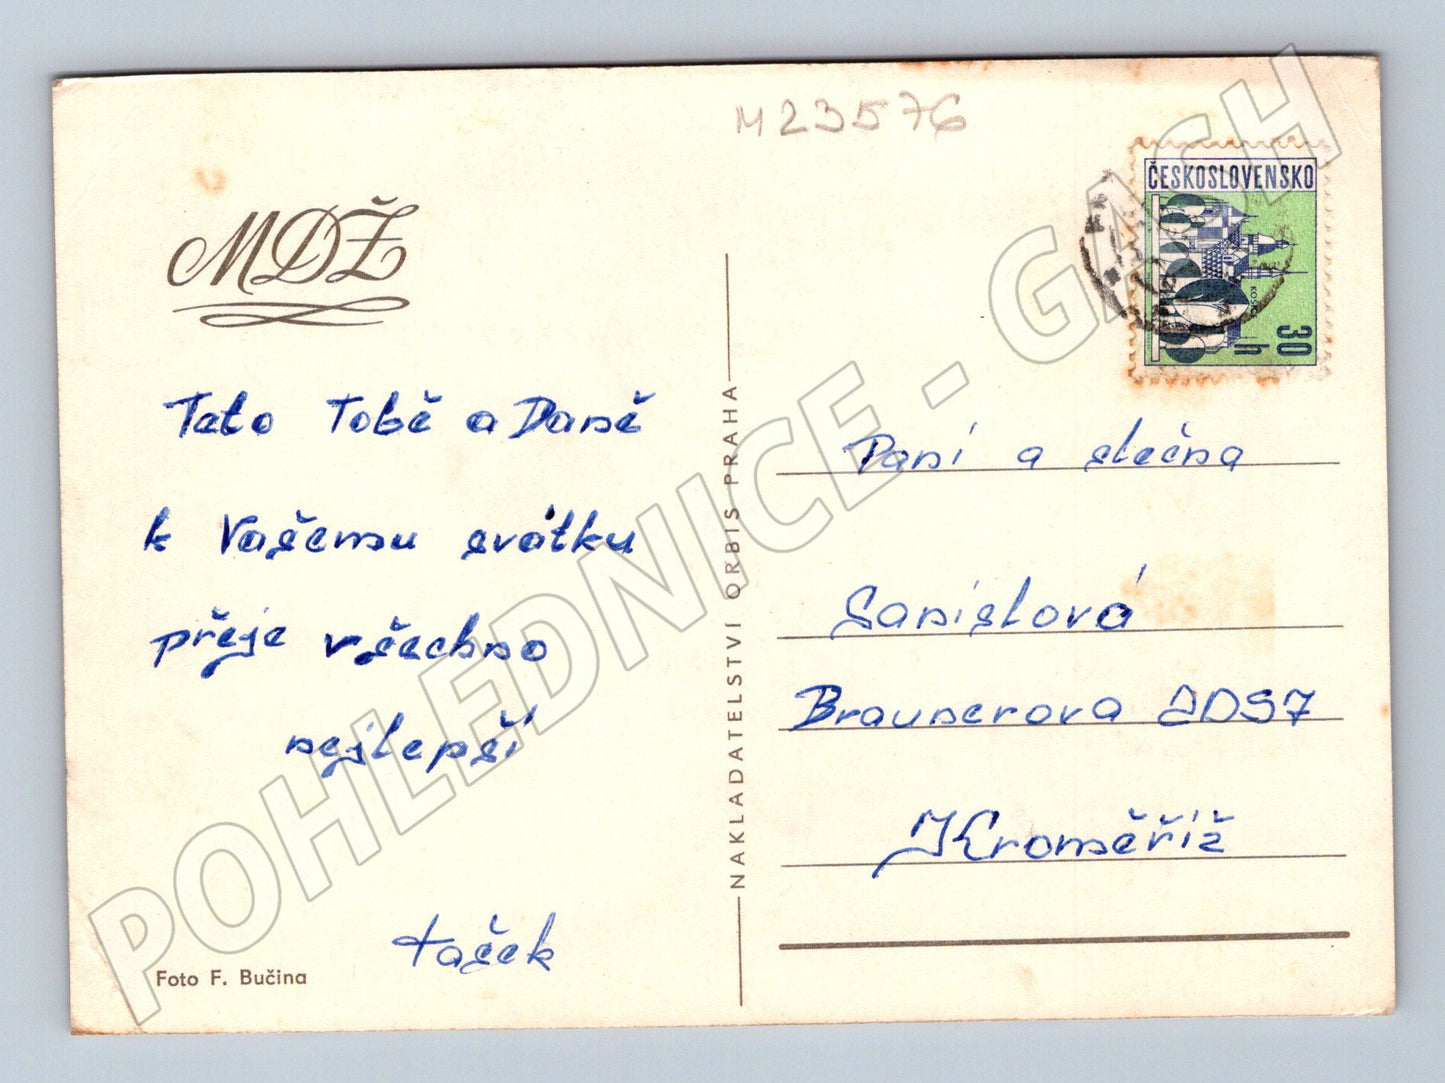 M23576
MDŽ
ČESKOSLOVENSKO
30
h
Tato Tobě a Daně
k Vašemu svátku
přeje všechno
nejlepší
tašek
Foto F. Bučina
NAKLADATELSTVÍ ORBIS PRAHA
Paní a slečna
Sanislová
Braunerova 2057
Kroměříž
POHLEDNICE - GACH